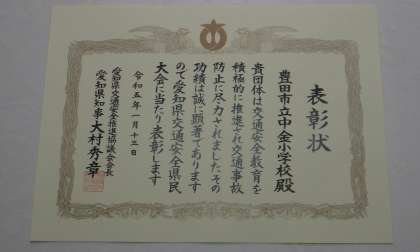 表彰状
豊田市立中金小学校殿
貴団体は交通安全教育を
積極的に推進され交通事故
防止に尽力されましたその
功績は誠に顕著であります
ので愛知県交通安全県民
大会に当たり表彰します
令和五年一月十三日
愛知県交通安全推進協議会会長
愛知県知事大村秀章